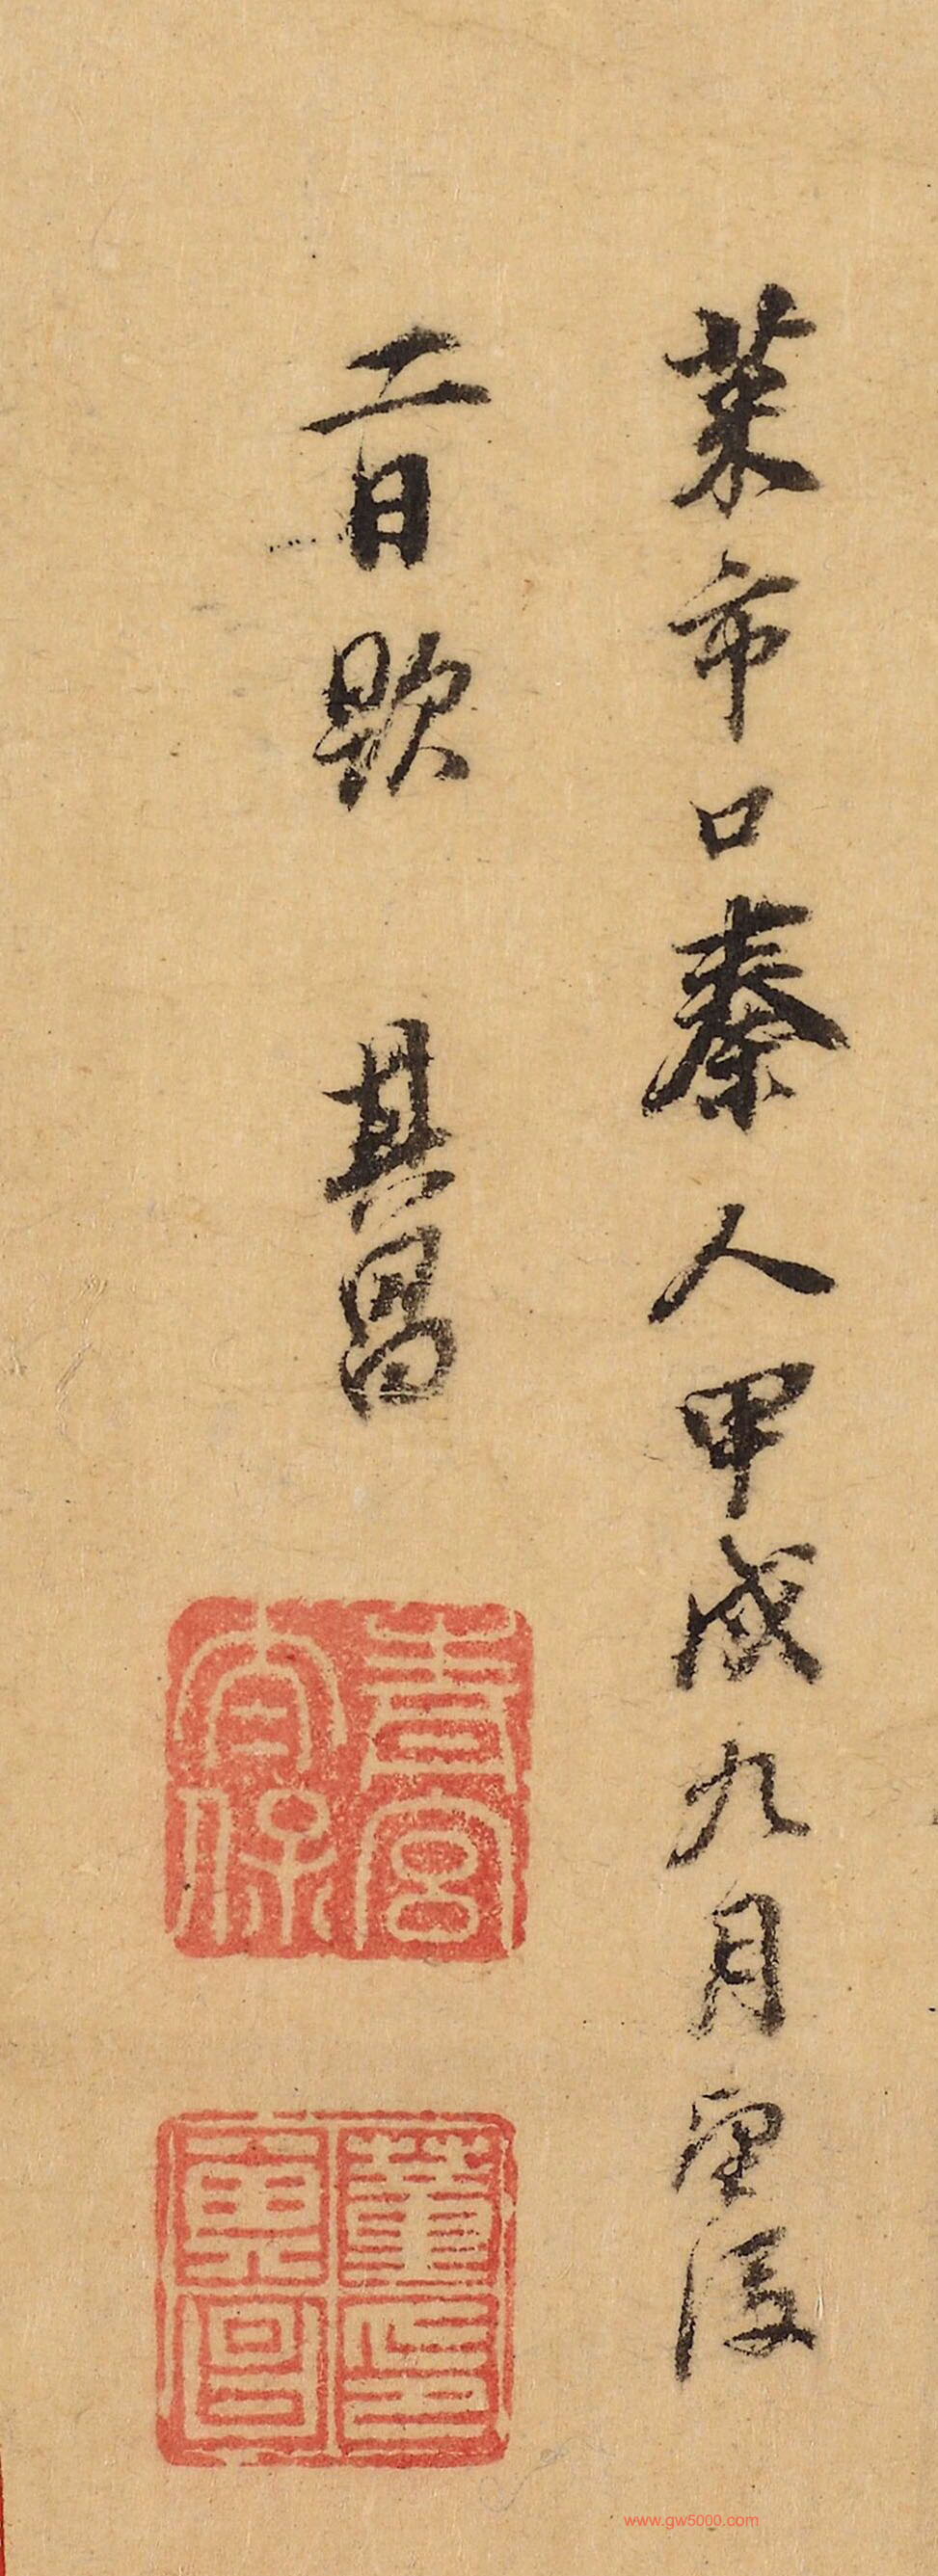 菜市口秦人甲戌九月望後
二日題 其昌
青宮
宮保
董印
其昌
www.gw5000.com